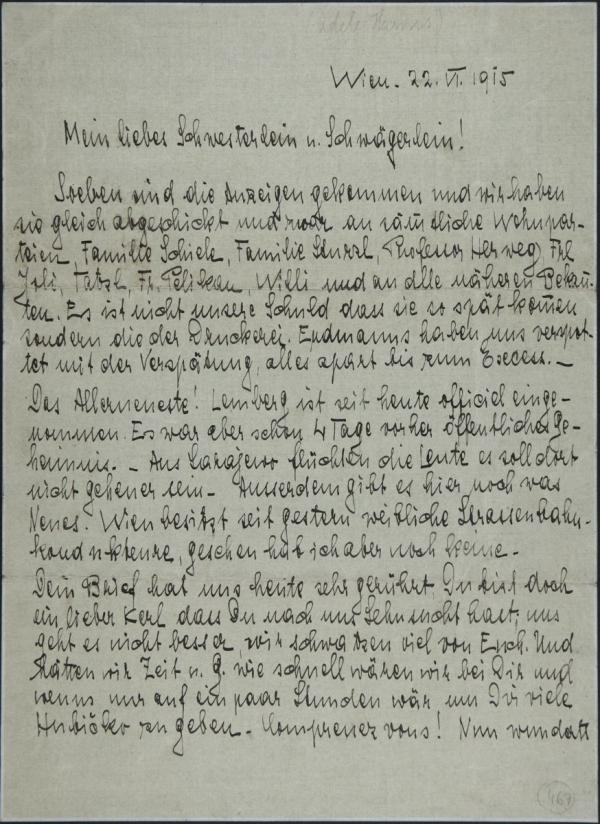 (Adele Harms)
Wien. 22. VI. 1915
Mein liebes Schwesterlein u. Schwägerlein!
Soeben sind die Anzeigen gekommen und wir haben
sie gleich abgeschickt und zwar an sämtliche Wohnpar-
teien, Familie Schiele, Familie Sturzl, Professor Herweg, Frl
Joli, Tatzl, Fr. Pelikan, Willi und an alle näheren Bekan̄-
ten. Es ist nicht unsere Schuld dass sie so spät kom̄en
sondern die der Druckerei. Erdmanns haben uns verspot-
tet mit der Verspätung, alles apart bis zum Excess. –
Das Allerneueste! Lemberg ist seit heute officiel einge-
nommen. Es war aber schon 4 Tage vorher öffentliches Ge-
heimnis. – Aus Sarajewo flüchten die Leute es soll dort
nicht geheuer sein – Ausserdem gibt es hier noch was
Neues. Wien besitzt seit gestern weibliche Strassenbahn-
kondukteure, gesehen hab ich aber noch keine –
Dein Brief hat uns heute sehr gerührt. Du bist doch
ein lieber Kerl dass Du nach uns Sehnsucht hast, uns
geht es nicht besser, wir schwatzen viel von Euch. Und
hätten wir Zeit u. G. wie schnell wären wir bei Dir und
wenns nur auf ein paar Stunden wär um Dir viele
Hubičko zu geben – Comprenez vous! Nun wundatt
467